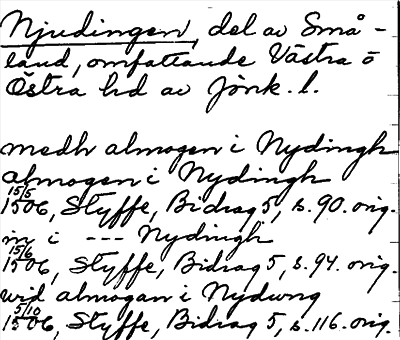 Njudingen, del av Små-
land, omfattande Västra o
Östra hd av Jönk. l.
medh almogen i Nydingh
almogen i Nydingh
15/5 1506, Styffe, Bidrag 5, s. 90. orig.
in i --- Nydingh
15/6 1506, Styffe, Bidrag 5, s. 94. orig.
wid almogan i Nydwng
5/10 1506, Styffe, Bidrag 5, s. 116. orig.